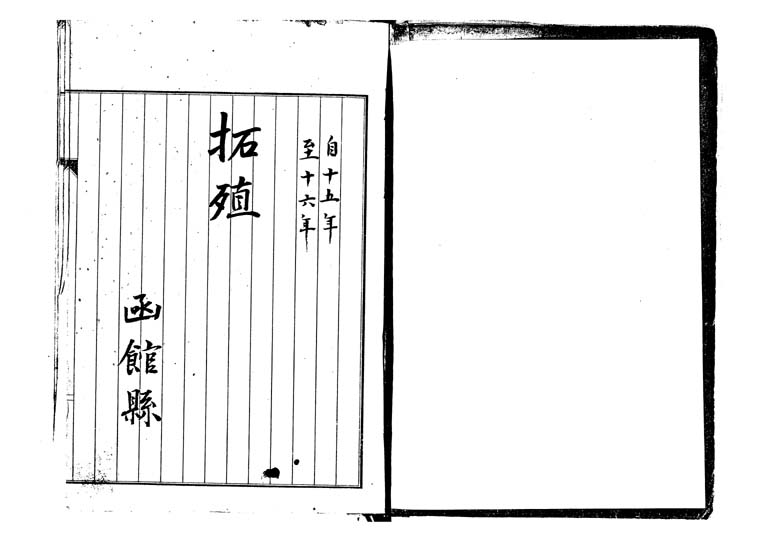 自十五年
至十六年
拓殖
函館縣